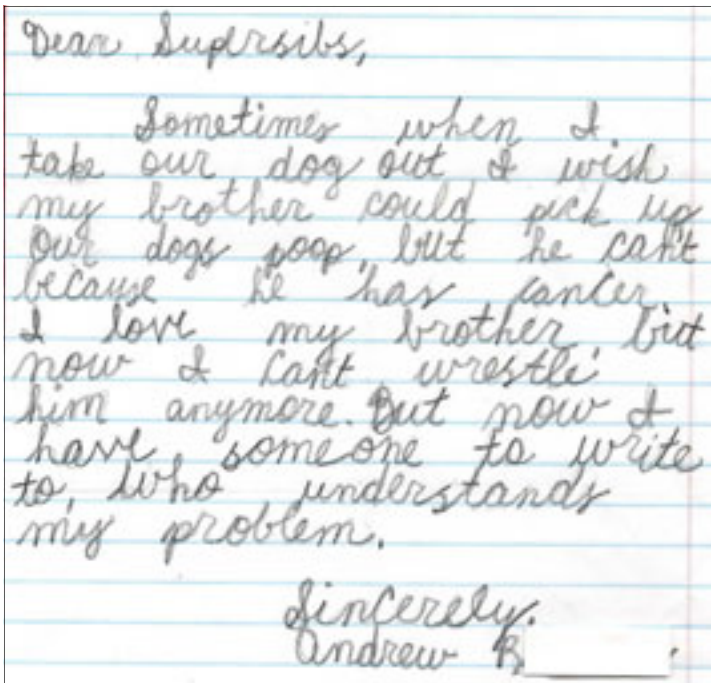 Dear Supersibs,
Sometimes when I
take our dog out I wish
my brother could pick up
our dogs poop, but he can't
because he has cancer.
I love my brother, but
now I can't wrestle
him anymore. But now I
have someone to write
to, who understands
my problem.
Sincerely.
Andrew B